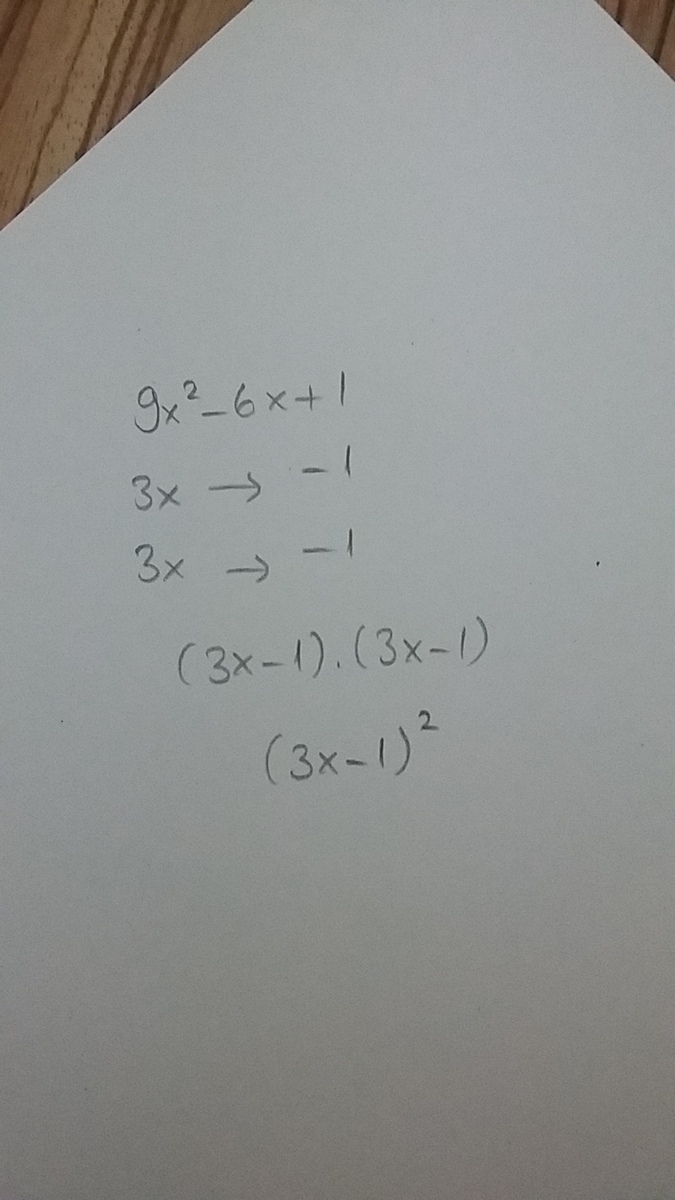 9x²-6x+1
3x → -1
3x → -1
(3x-1).(3x-1)
(3x-1)²